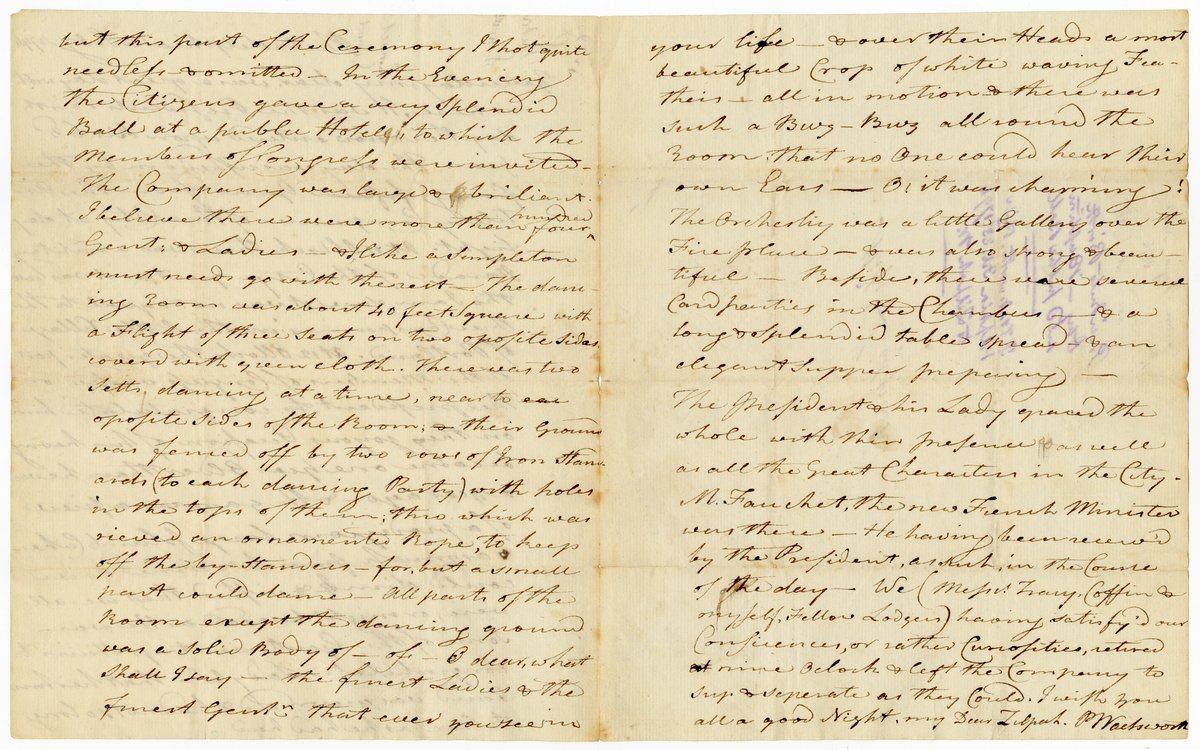 but this part of the Ceremony I thot quite
needless & omitted — In the Evening
the Citizens gave a very splendid
Ball at a public Hotel, to which the
Members of Congress were invited —
The Company was large & briliant.
I believe there were more than four hundred
Gent: & Ladies — & I like a simpleton
must needs go with the rest — The danc-
ing Room was about 40 feet square with
a Flight of three seats on two oposite sides
coverd with green cloth. There was two
setts, dancing at a time, near to
oposite sides of the Room; & their Ground
was fenced off by two rows of Iron Stand-
ards (to each dancing Party) with holes
in the tops of them; thro which was
rieved an ornamented Rope, to keep
off the by-standers — for, but a small
part could dance — All parts of the
Room except the dancing ground
was a solid Body of — of — O dear, what
shall I say — the finest Ladies & the
finest Gentn. that ever you see in
your life — & over their Heads a most
beautiful Crop of white waving Fea-
thers — all in motion & there was
such a Buz-Buz all round the
Room, that no One could hear their
own Ears — O! it was charming!
The Orchestry was a little Gallery over the
Fire place — & was also strong & beau-
tiful — Beside, there were several
Card parties in the Chambers — & a
long & splendid table spread — & an
elegant Supper preparing —
The President & his Lady graced the
whole with their presence as well
as all the Great Characters in the City.
M. Fauchet, the new French Minister
was there — He having been receiv'd
by the President, as such, in the Course
of the day — We (Messrs. Tracy, Coffin &
myself, Fellow Lodgers) having satisfy'd our
Consciences, or rather Curiosities, retired
at nine Oclock & left the Company to
sup & seperate as they Could. I wish you
all a good Night, my Dear Zilpah. P Wadsworth